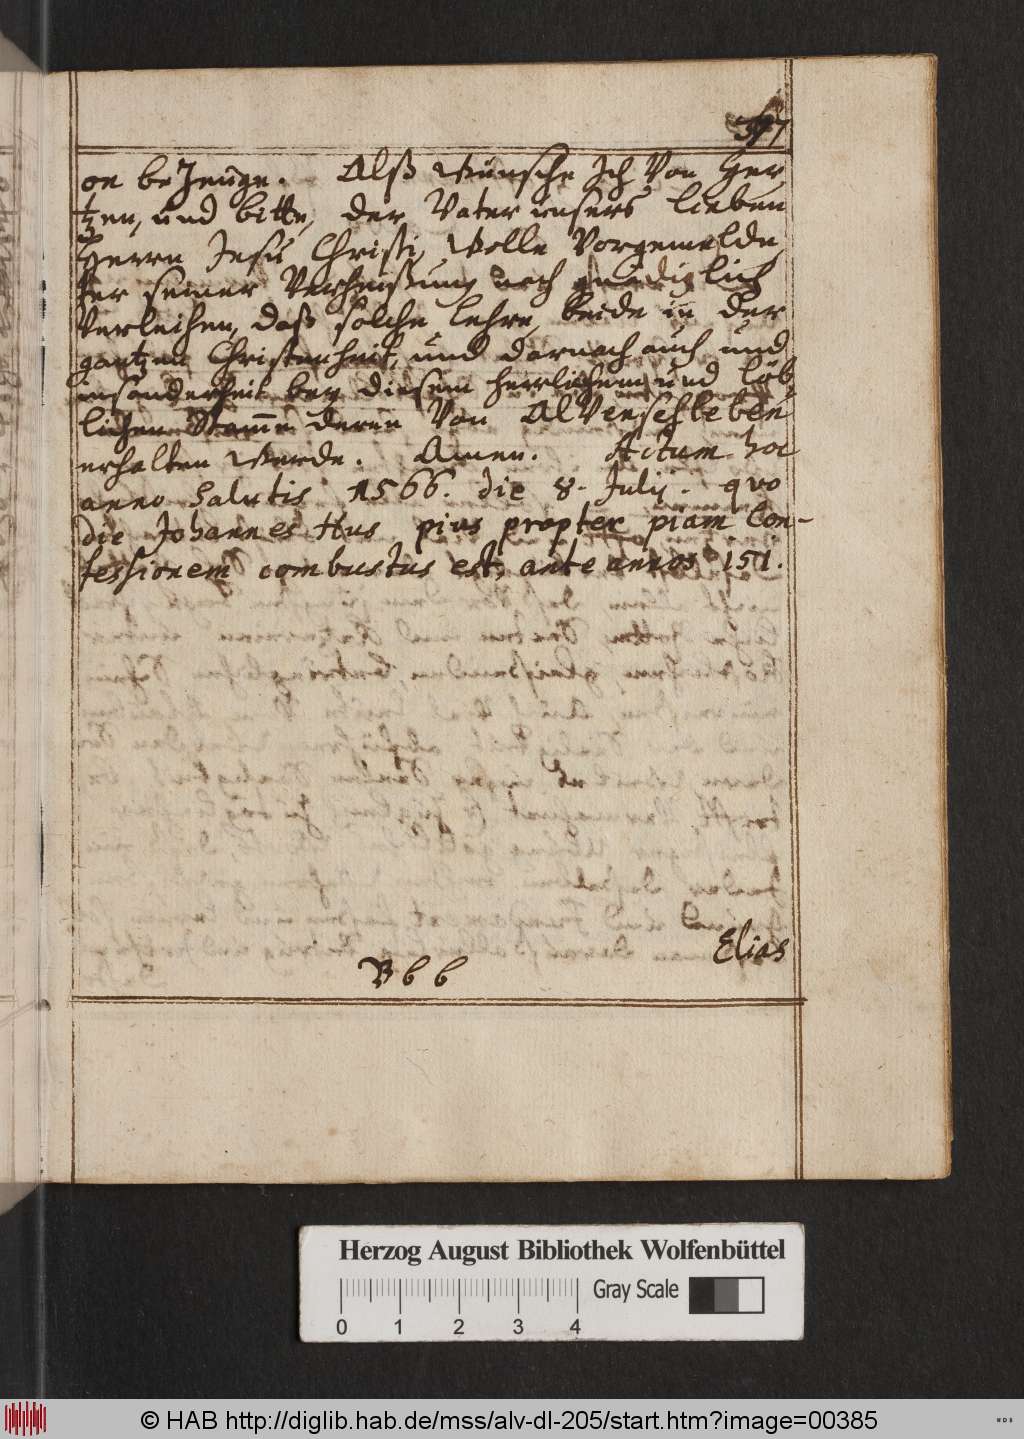 377
on bezeuge. Alß Wünsche Ich Von Her
tzen, und bitte, der Vater unsers lieben
Herrn Jesu Christi, Wolle Vorgemelde
ter seiner Verheissung nach gnädiglich
Verleihen, daß solche Lehre, beide in der
gantzen Christenheit, und darnach auch und
insonderheit bey diesem herrlichem und löb
lichen Stamme deren Von AlVenschleben
erhalten Werde. Amen. Actum hoc
anno Salutis 1566. die 8. Julij. quo
die Johannes Hus pius propter piam Con-
fessionem combustus est, ante annos 151.
Elias
B b b
Herzog August Bibliothek Wolfenbüttel
Gray Scale
0 1 2 3 4
© HAB http://diglib.hab.de/mss/alv-dl-205/start.htm?image=00385